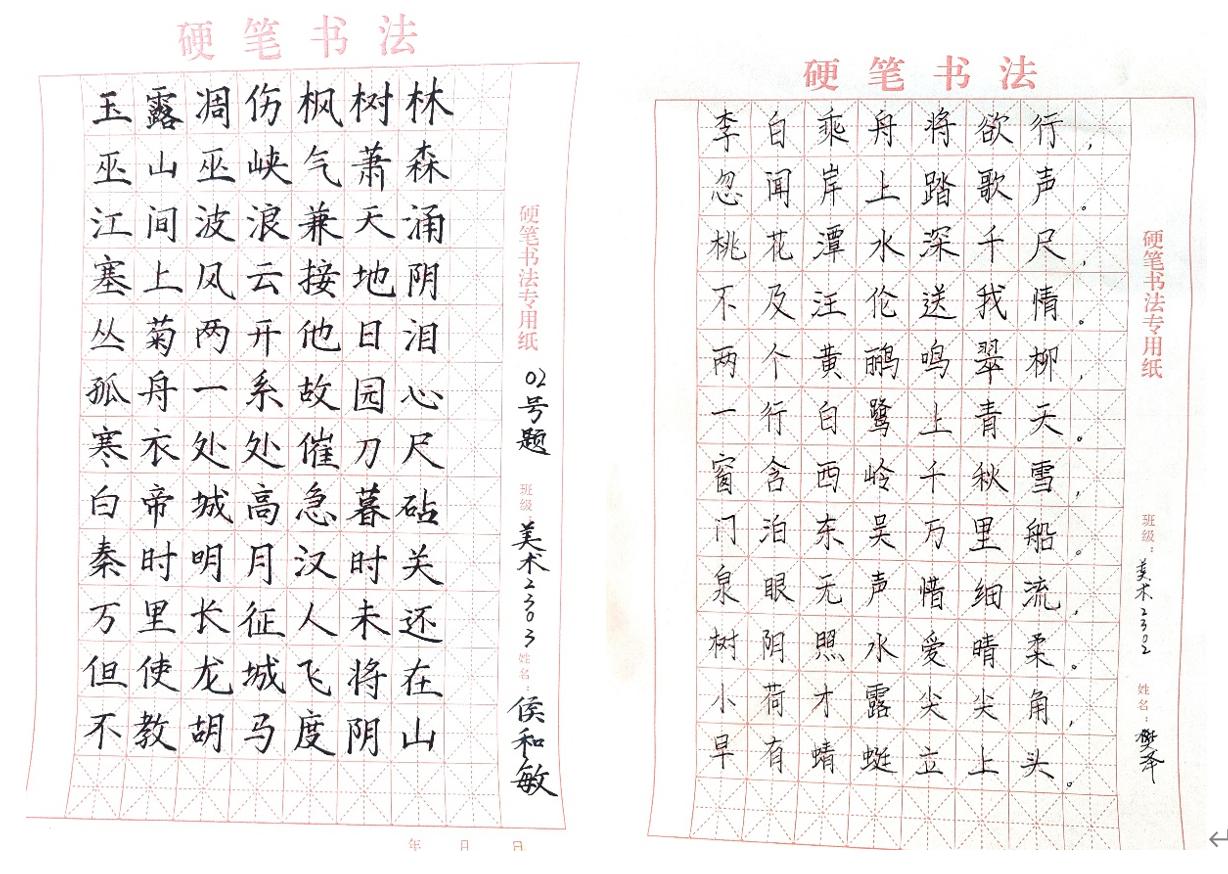 硬笔书法
玉露凋伤枫树林
巫山巫峡气萧森
江间波浪兼天涌
塞上风云接地阴
丛菊两开他日泪
孤舟一系故园心
寒衣处处催刀尺
白帝城高急暮砧
秦时明月汉时关
万里长征人未还
但使龙城飞将在
不教胡马度阴山
硬笔书法专用纸
02号题
班级 美术2303
姓名: 侯和敏
年 月 日
硬笔书法
李白乘舟将欲行,
忽闻岸上踏歌声。
桃花潭水深千尺,
不及汪伦送我情。
两个黄鹂鸣翠柳,
一行白鹭上青天。
窗含西岭千秋雪,
门泊东吴万里船。
泉眼无声惜细流,
树阴照水爱晴柔。
小荷才露尖尖角,
早有蜻蜓立上头。
硬笔书法专用纸
班级: 美术2302
姓名: 樊泽